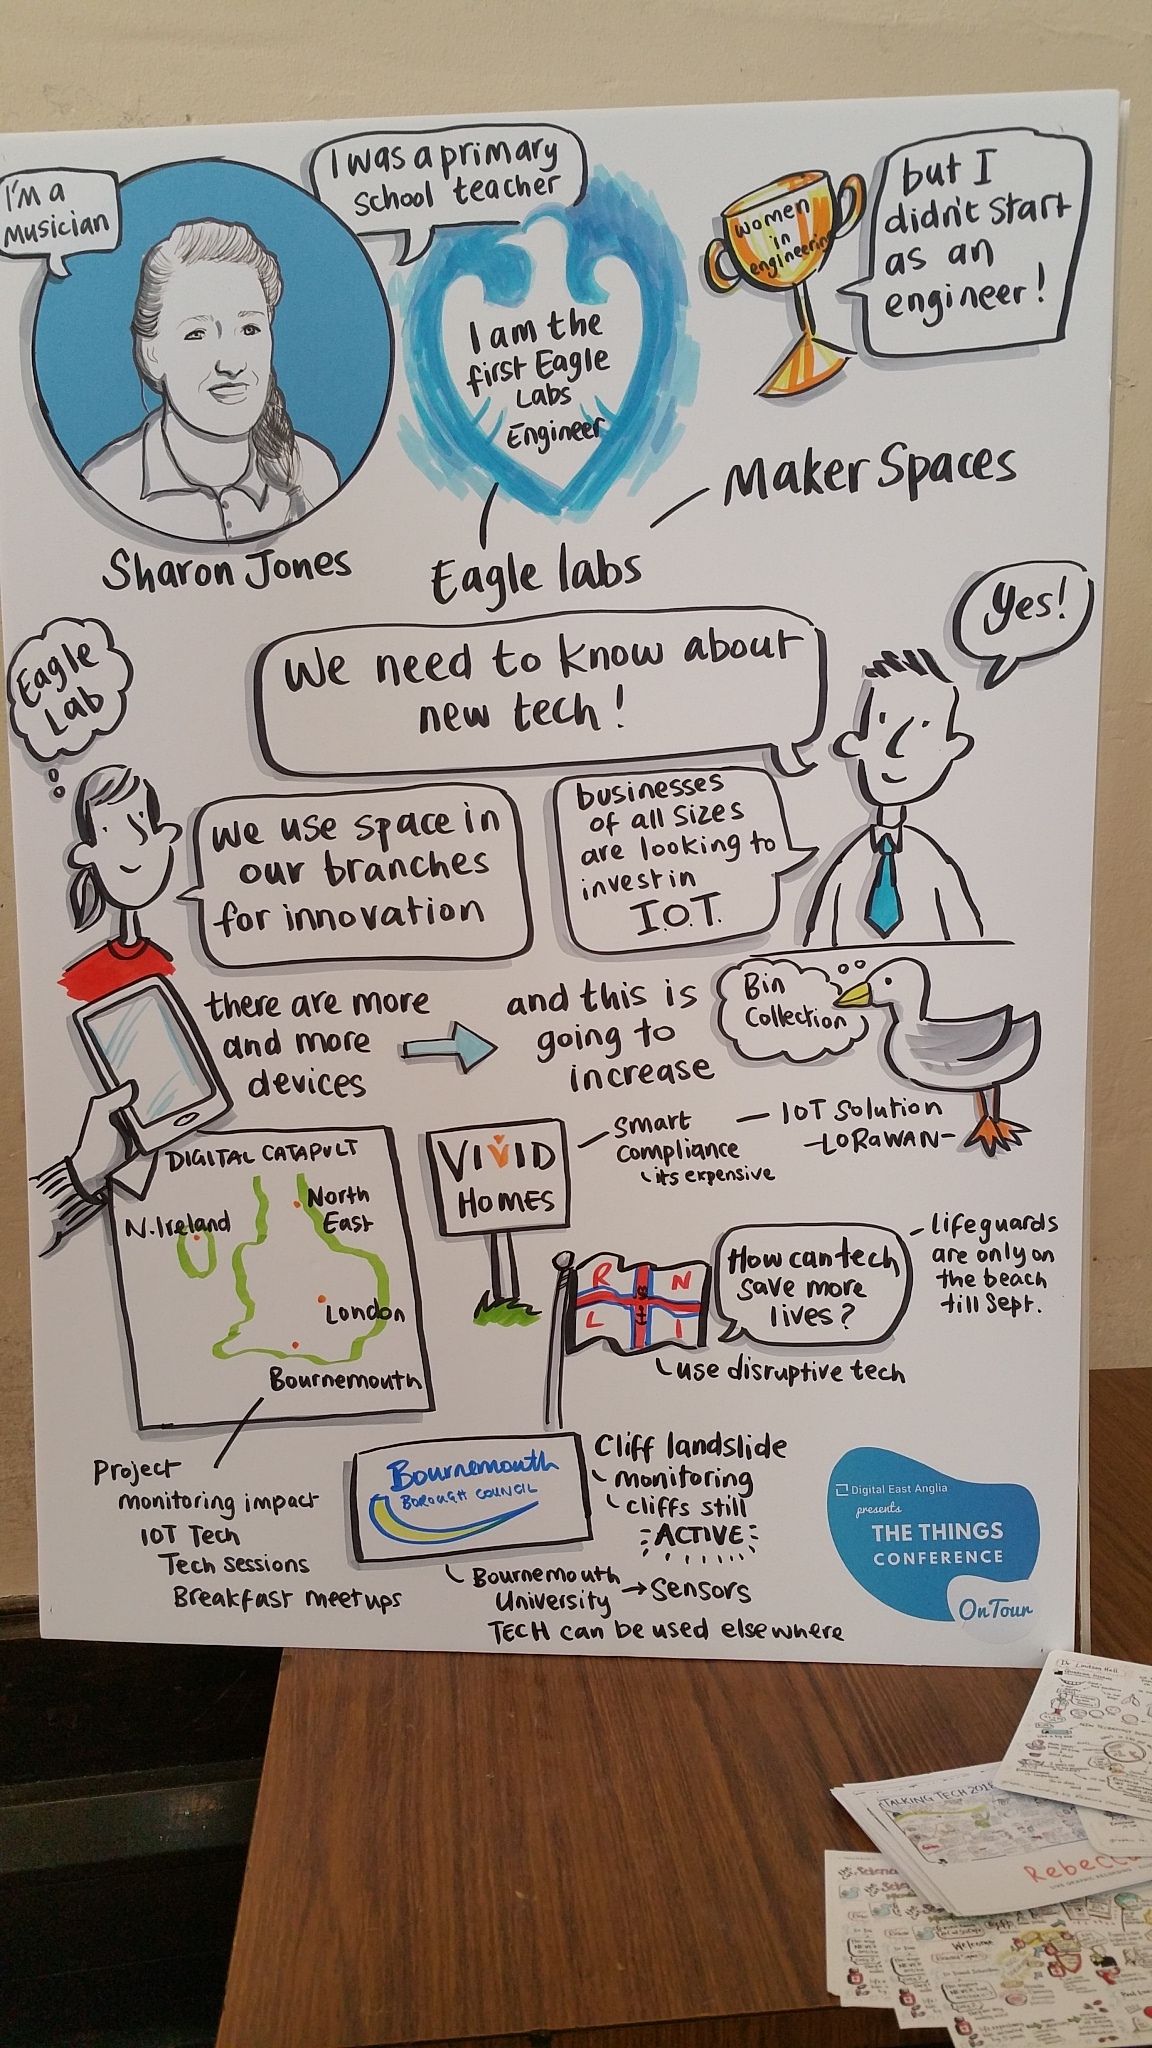 I'm a
Musician
I was a primary
school teacher
women
in
engineering
but I
didn't start
as an
engineer!
I am the
first Eagle
Labs
Engineer
Maker Spaces
Sharon Jones
Eagle labs
Eagle
Lab
We need to know about
new tech!
Yes!
we use space in
our branches
for innovation
businesses
of all sizes
are looking to
invest in
I.O.T.
there are more
and more
devices
and this is
going to
increase
Bin
Collection
DIGITAL CATAPULT
N.Ireland
North
East
London
Bournemouth
VIVID
HOMES
Smart
compliance
its expensive
IOT Solution
-LORaWAN-
R N
L I
How can tech
save more
lives?
lifeguards
are only on
the beach
till Sept.
use disruptive tech
Project
monitoring impact
IOT Tech
Tech sessions
Breakfast meetups
Bournemouth
BOROUGH COUNCIL
Cliff landslide
monitoring
cliffs still
ACTIVE
Bournemouth
University → Sensors
TECH can be used elsewhere
Digital East Anglia
presents
THE THINGS
CONFERENCE
On Tour
TALKING TECH
Welcome